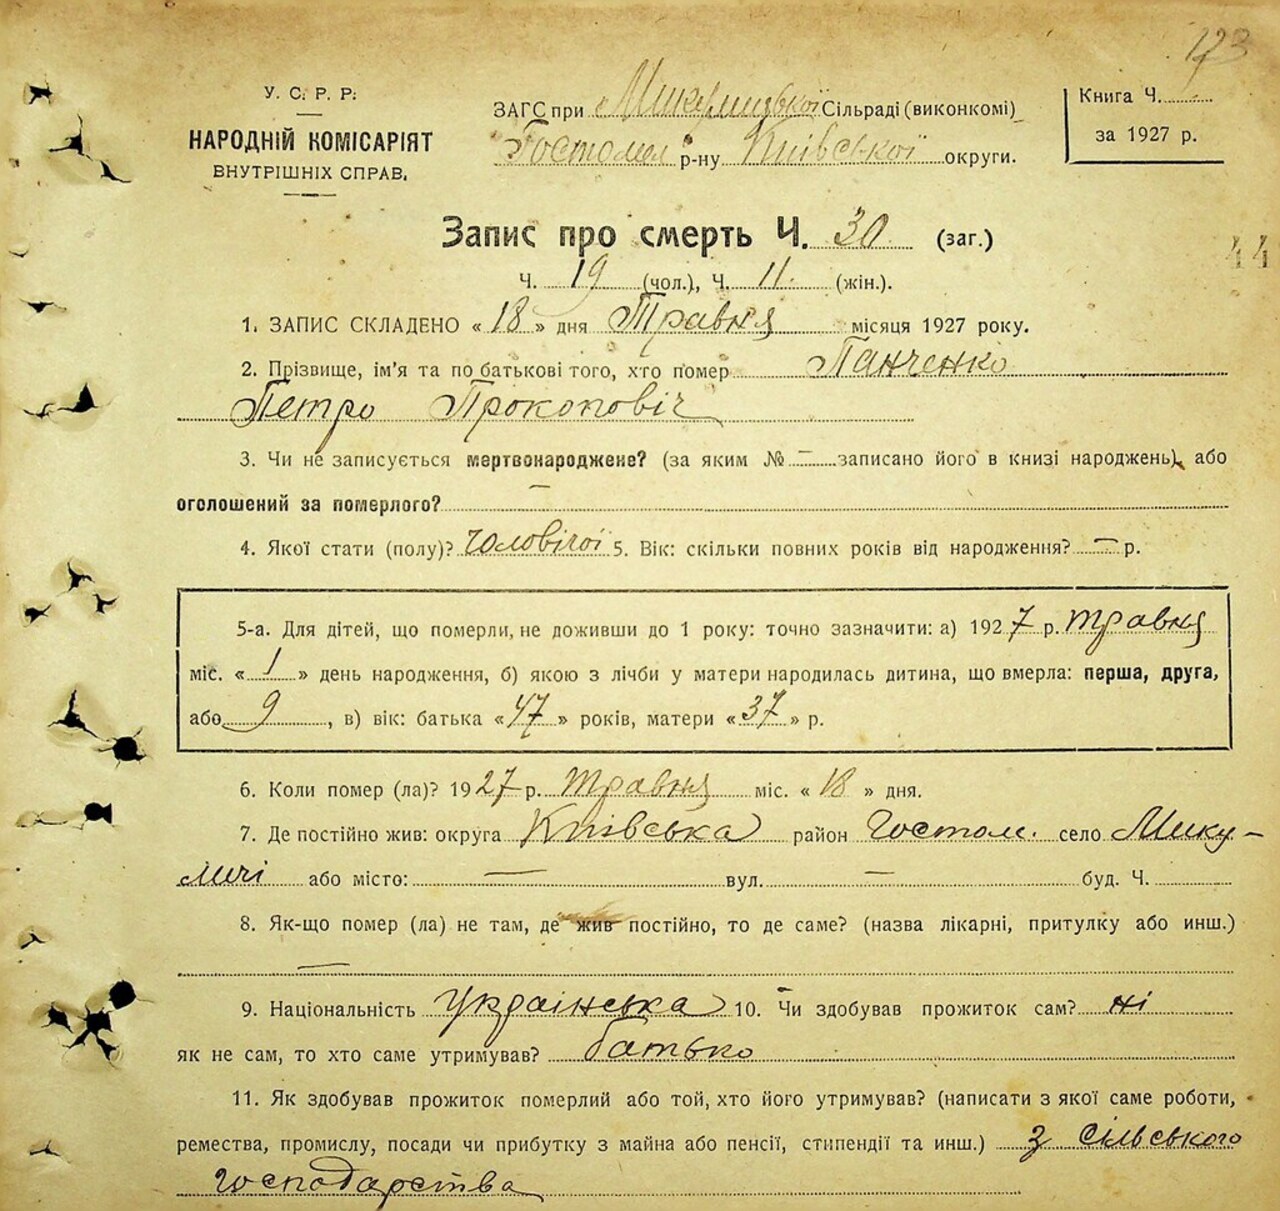 123
У. С. Р. Р.
НАРОДНІЙ КОМІСАРІЯТ
ВНУТРІШНІХ СПРАВ.
ЗАГС при Микулицької Сільраді (виконкомі)
Гостомел р-ну Київської округи.
Книга Ч.
за 1927 р.
Запис про смерть Ч. 30 (заг.)
44
Ч. 19 (чол.), Ч. 11. (жін.).
1. ЗАПИС СКЛАДЕНО « 18 » дня Травня місяця 1927 року.
2. Прізвище, ім'я та по батькові того, хто помер Панченко
Петро Прокоповіч
3. Чи не записується мертвонароджене? (за яким № — записано його в книзі народжень), або
оголошений за померлого? —
4. Якої стати (полу)? Чоловічої 5. Вік: скільки повних років від народження? — р.
5-а. Для дітей, що померли, не доживши до 1 року: точно зазначити: а) 1927 р. травня
міс. « 1 » день народження, б) якою з лічби у матери народилась дитина, що вмерла: перша, друга,
або 9, в) вік: батька « 47 » років, матери « 37 » р.
6. Коли помер (ла)? 1927 р. травня міс. « 18 » дня.
7. Де постійно жив: округа Київська район Гостом. село Мику–
личі або місто: — вул. — буд. Ч.
8. Як-що помер (ла) не там, де жив постійно, то де саме? (назва лікарні, притулку або инш.)
—
9. Національність Українська 10. Чи здобував прожиток сам? ні
як не сам, то хто саме утримував? батько
11. Як здобував прожиток померлий або той, хто його утримував? (написати з якої саме роботи,
ремества, промислу, посади чи прибутку з майна або пенсії, стипендії та инш.) з сільського
господарства